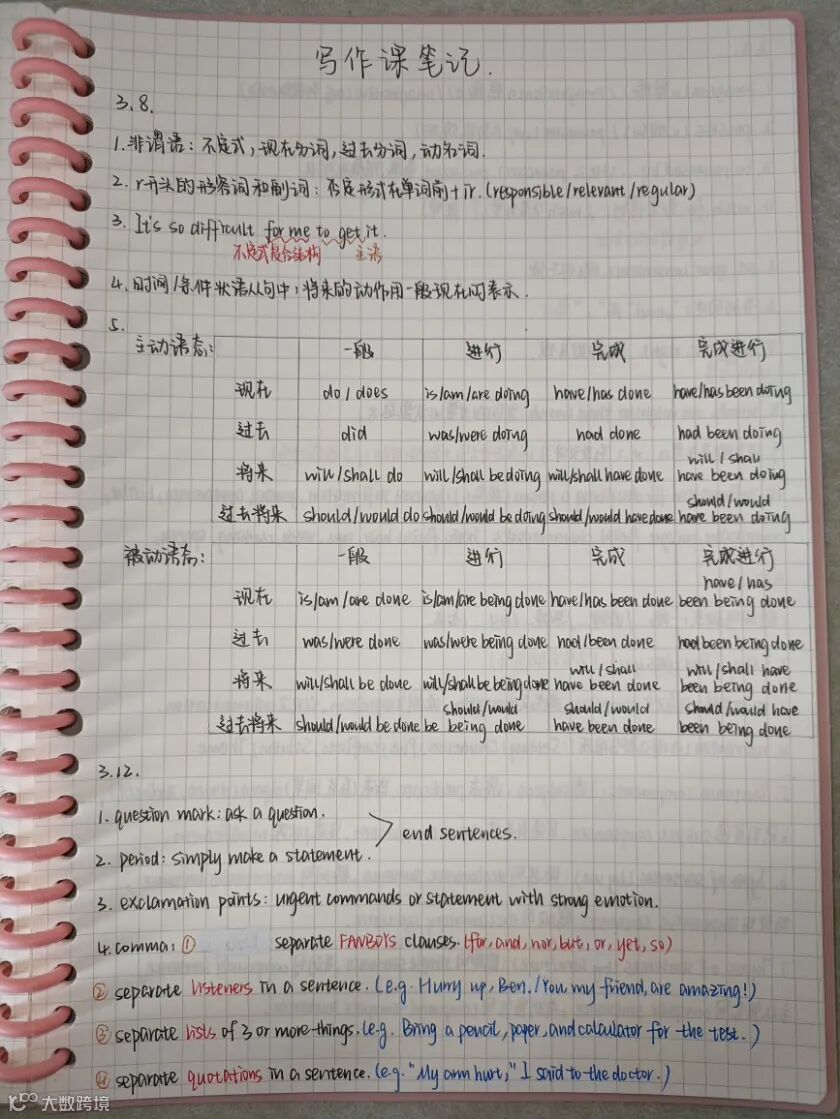 写作课笔记.
3.8.
1.非谓语：不定式，现在分词，过去分词，动名词.
2. r开头的形容词和副词：否定形式在单词前+ir. (responsible/relevant/regular)
3. It's so difficult for me to get it.
不定式复合结构 主语
4. 时间/条件状语从句中：将来的动作用一般现在时表示.
5.
主动语态： 一般 进行 完成 完成进行
现在 do/does is/am/are doing have/has done have/has been doing
过去 did was/were doing had done had been doing
将来 will/shall do will/shall be doing will/shall have done will/shall have been doing
过去将来 should/would do should/would be doing should/would have done should/would have been doing
被动语态： 一般 进行 完成 完成进行
现在 is/am/are done is/am/are being done have/has been done have/has been being done
过去 was/were done was/were being done had/been done had been being done
将来 will/shall be done will/shall be being done will/shall have been done will/shall have been being done
过去将来 should/would be done should/would be being done should/would have been done should/would have been being done
3.12.
1. question mark: ask a question.
end sentences.
2. period: simply make a statement.
3. exclamation points: urgent commands or statement with strong emotion.
4. comma: ① separate FANBOYS clauses. (for, and, nor, but, or, yet, so)
② separate listeners in a sentence. (e.g. Hurry up, Ben. / You, my friend, are amazing!)
③ separate lists of 3 or more things. (e.g. Bring a pencil, paper, and calculator for the test.)
④ separate quotations in a sentence. (e.g. "My arm hurt," I said to the doctor.)
大数跨境